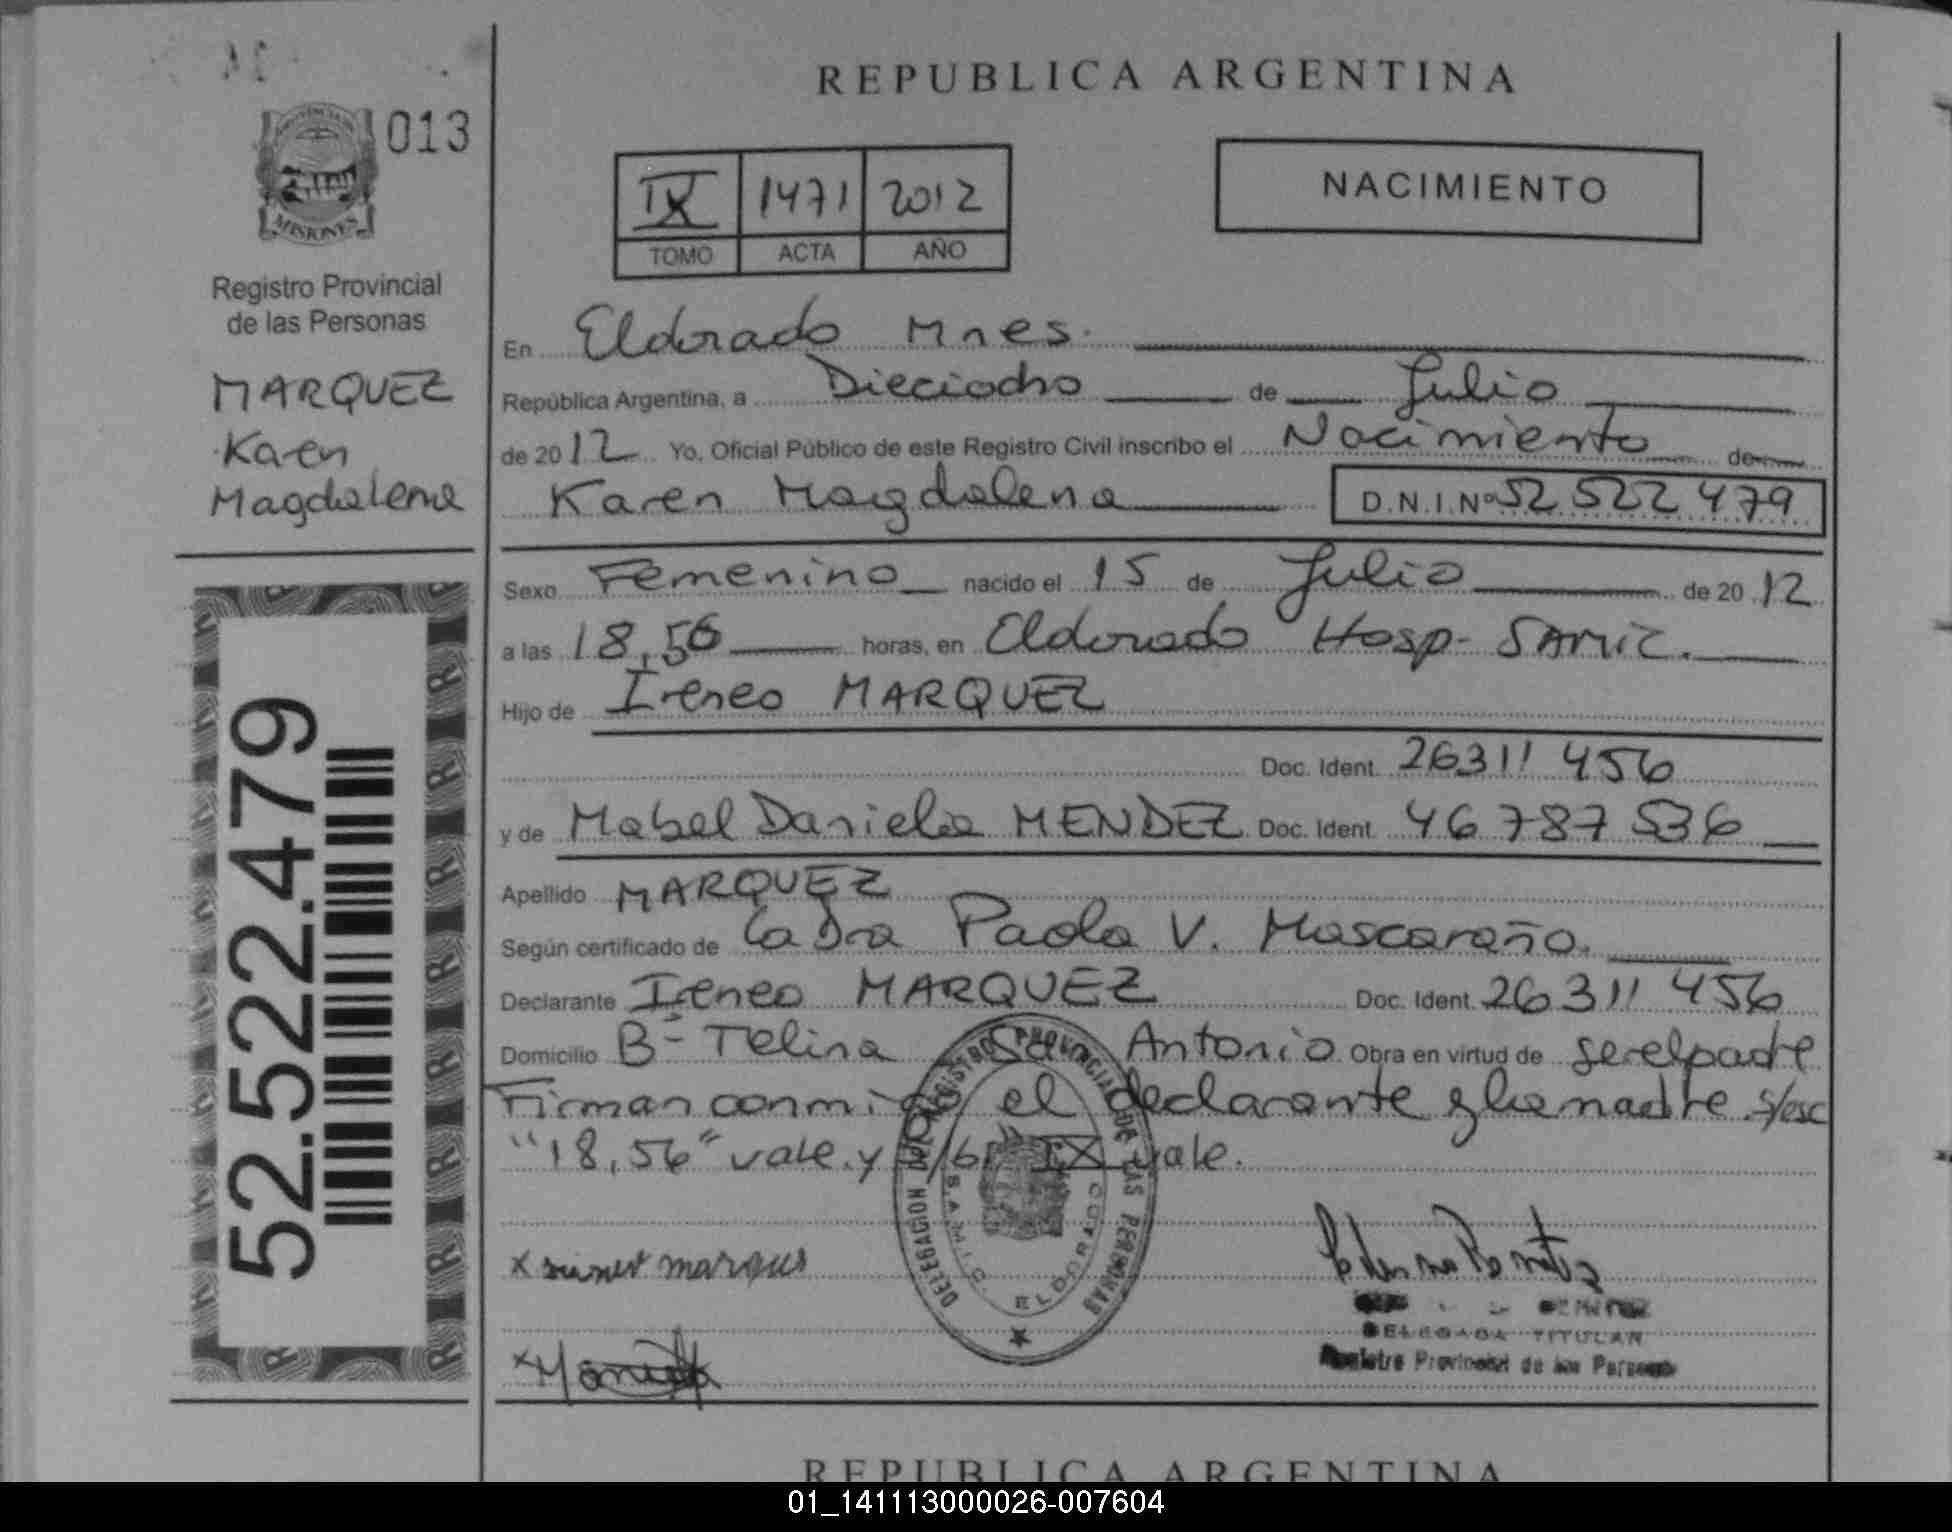 REPUBLICA ARGENTINA
013
PROVINCIA DE
MISIONES
Registro Provincial
de las Personas
MARQUEZ
Karen
Magdalena
52.522.479
IX 1471 2012
TOMO ACTA AÑO
NACIMIENTO
En Eldorado Mnes.
República Argentina, a Dieciocho de Julio
de 2012 Yo, Oficial Público de este Registro Civil inscribo el Nacimiento de
Karen Magdalena D.N.I.Nº 52 522 479
Sexo Femenino nacido el 15 de Julio de 2012
a las 18,56 horas, en Eldorado Hosp- SAMIC.
Hijo de Ireneo MARQUEZ
Doc. Ident. 26311 456
y de Mabel Daniela MENDEZ Doc. Ident. 46 787 536
Apellido MARQUEZ
Según certificado de La Dra Paola V. Mascaraño.
Declarante Ireneo MARQUEZ Doc. Ident. 26311 456
Domicilio Bº Telina San Antonio Obra en virtud de ser el padre
Firman conmigo el declarante y la madre s/esc
"18,56" vale. y s/br IX vale.
DELEGACION DEL REGISTRO PROVINCIAL DE LAS PERSONAS
S.A.M.I.C. ELDORADO
x marques
DELEGADA TITULAR
Registro Provincial de las Personas
REPUBLICA ARGENTINA
01_141113000026-007604